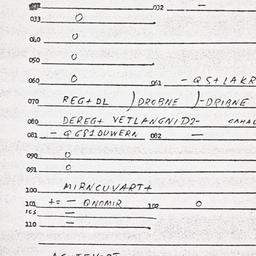 032 —
033 0
040 0
050 0
060 0 061
070 REG+DL )DROBNE )-DRIBNE
080 DEREG+ VETLANGNID2-
081 - QGS1DUWERN 082 —
090 0
091 0
100 MIRNCUVART+
101 += - QNOMIR 102 0
105 —
110 —